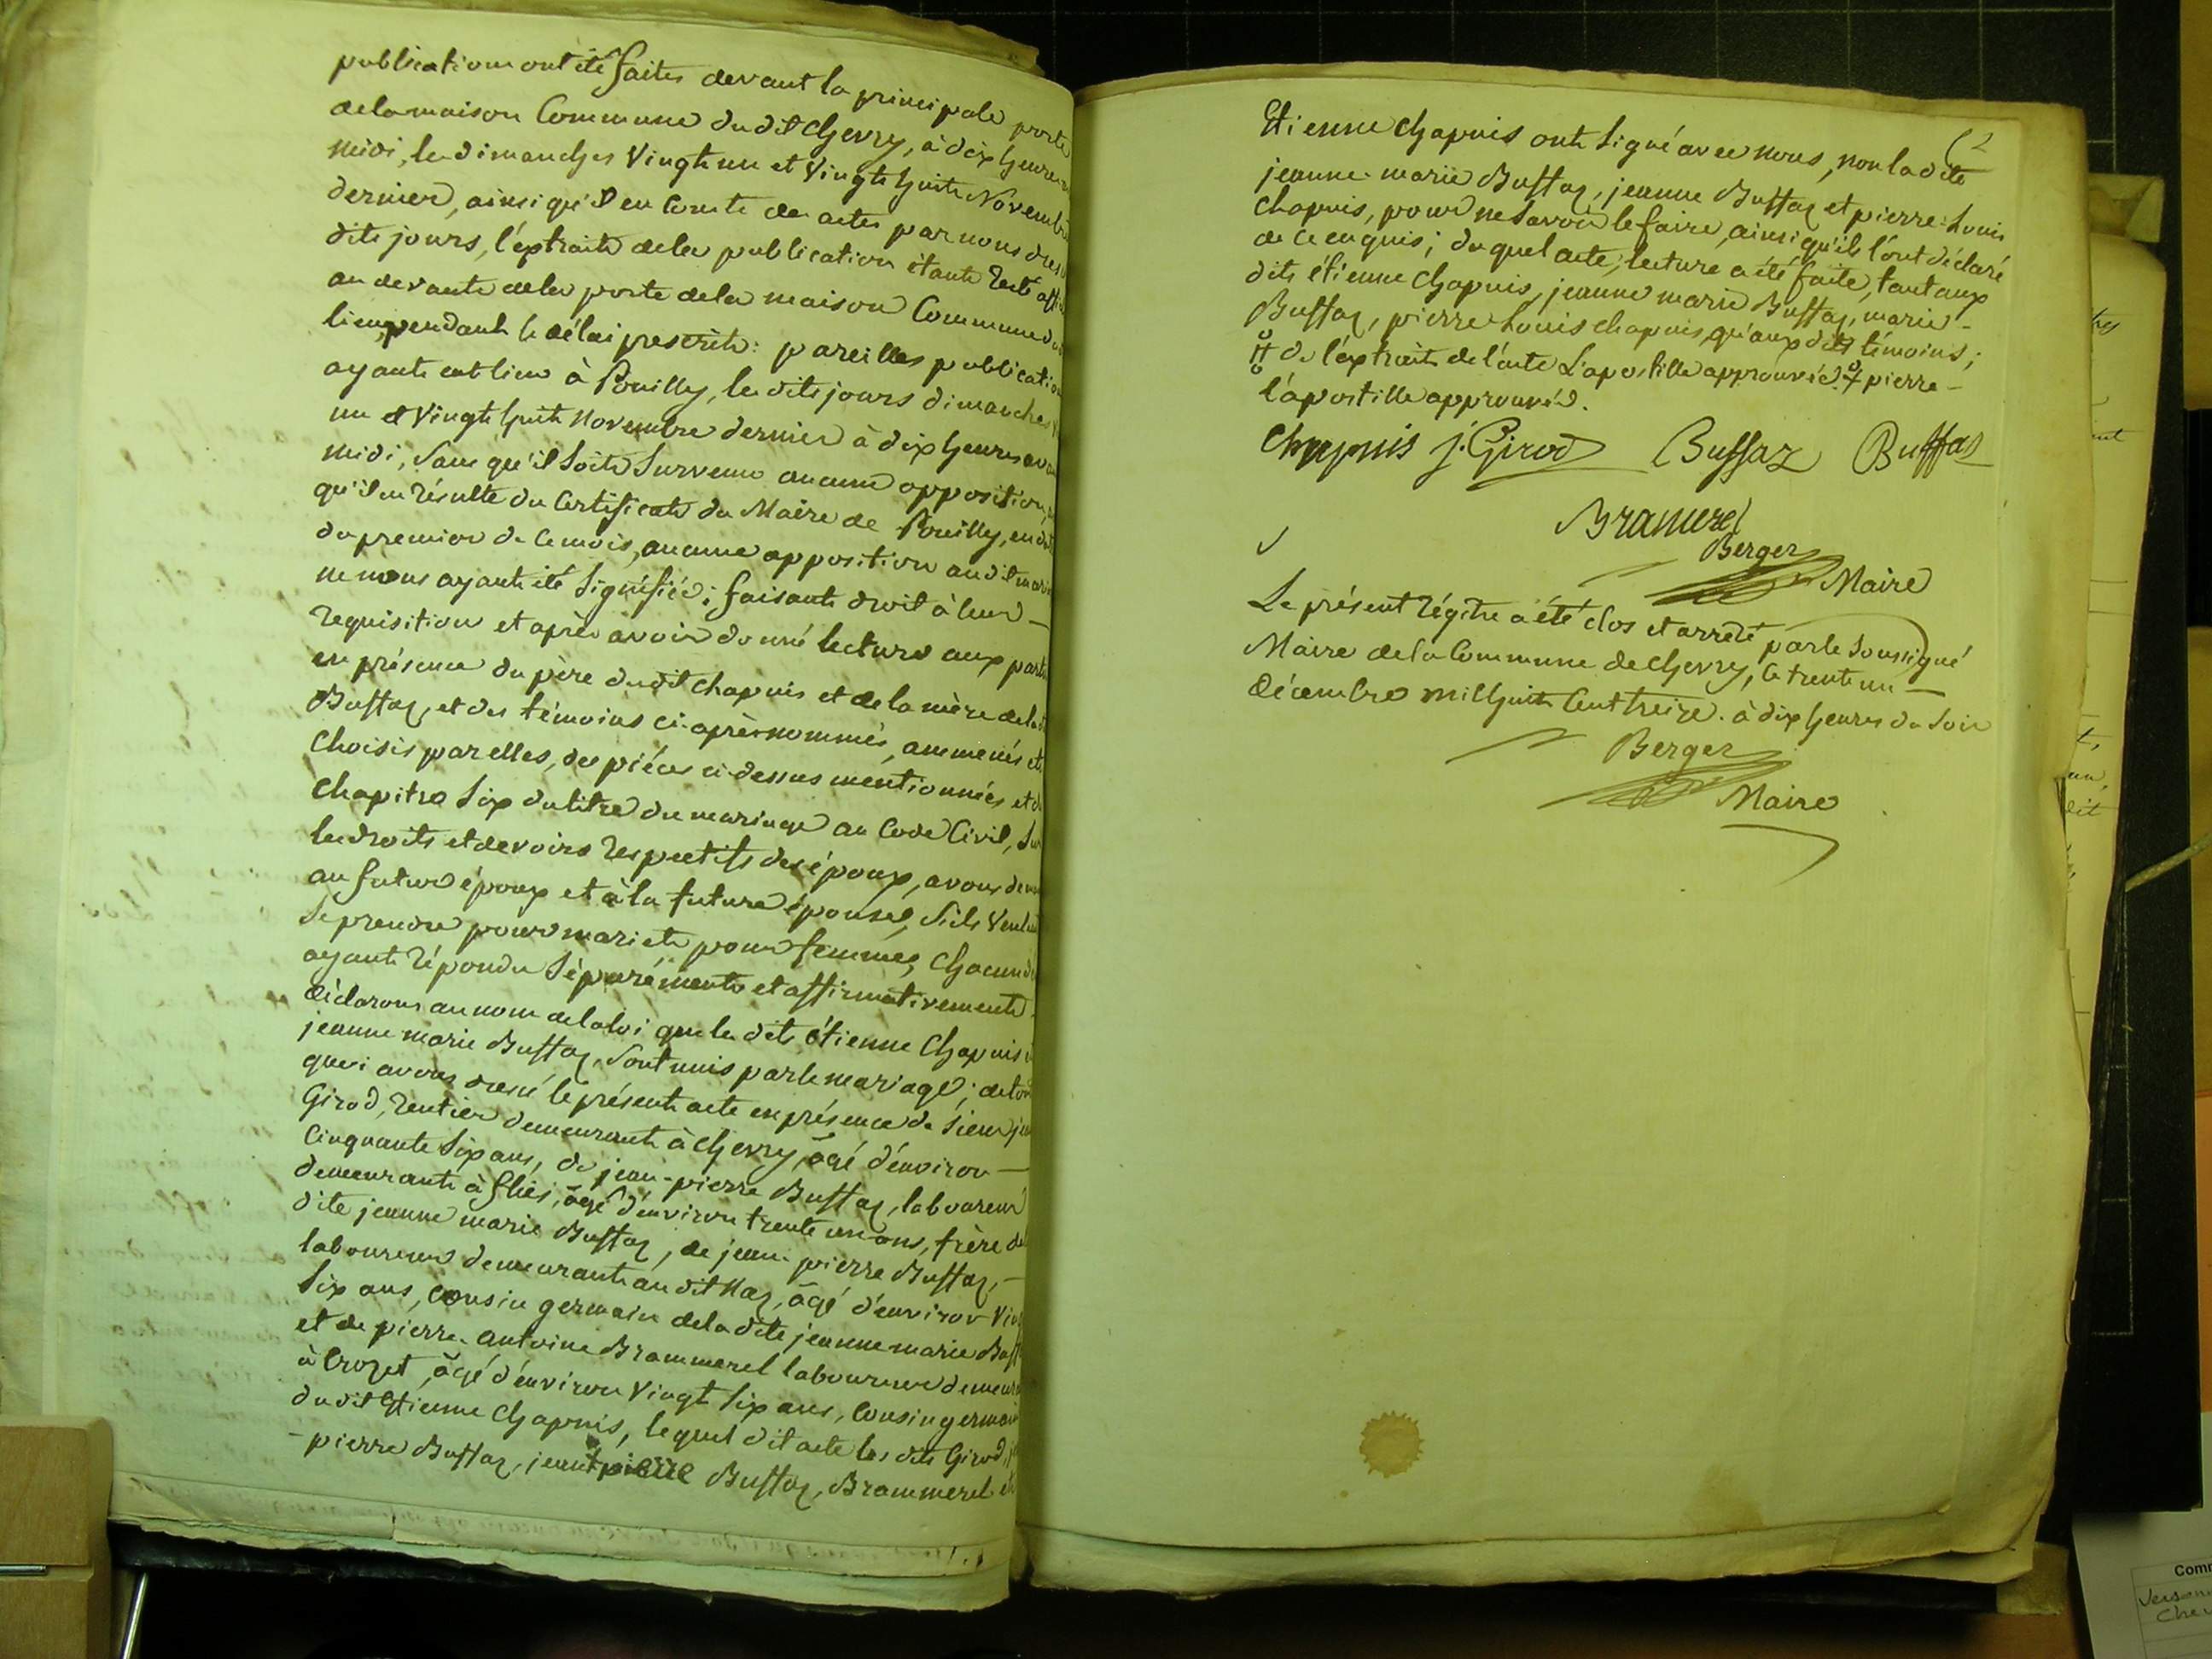 publications ont été faites devant la principale porte
de la maison Commune dudit Chevry, à dix heures
midi, les dimanches Vingt un et Vingt huit Novembre
dernier, ainsi qu'il en Conste des actes par nous
dits jours, l'extrait de la publication étant resté
au devant de la porte de la maison Commune
lieu, pendant le délai prescrit: pareilles publications
ayant eut lieu à Pouilly, les dits jours dimanches
un et Vingt huit Novembre dernier à dix heures
midi, sans qu'il soit survenu aucune opposition,
qu'il en résulte du Certificat du Maire de Pouilly, en
du premier de ce mois, aucune opposition audit
ne nous ayant été signifiée; faisant droit à leur —
requisition et après avoir donné lecture aux
en présence du père dudit Chapuis et de la mère de la
Buffaz, et des témoins ci-après nommés, ammenés et
Choisis par elles, des pièces ci-dessus mentionnées et
Chapitre six du titre du mariage au Code Civil, Sur
les droits et devoirs respectifs des époux, avons
au futur époux et à la future épouse, s'ils veulent
se prendre pour mari et pour femme, chacun
ayant répondu séparément et affirmativement
déclarons au nom de la loi que les dits étienne Chapuis
jeanne marie Buffaz, sont unis par le mariage; de
quoi avons dressé le présent acte en présence de sieur
Girod, rentier demeurant à Chevry, âgé d'environ —
Cinquante six ans, de jean-pierre Buffaz, laboureur
demeurant à flies, âgé d'environ trente un ans, frère de
dite jeanne marie Buffaz, de jean-pierre Buffaz, —
laboureur demeurant au dit Naz, âgé d'environ
six ans, cousin germain de la dite jeanne marie
et de pierre-antoine Brammerel laboureur
à Crozet, âgé d'environ Vingt six ans, Cousin germain
dudit Etienne Chapuis, lequel dit acte les dits Girod,
-pierre Buffaz, jean pierre Buffaz, Brammerel et
Etienne Chapuis ont signé avec nous, non la dite
jeanne-marie Buffaz, jeanne Buffaz et pierre-Louis
Chapuis, pour ne savoir le faire, ainsi qu'ils l'ont déclaré
de ce enquis; duquel acte, lecture a été faite, tant aux
dits étienne Chapuis, jeanne marie Buffaz, marie-
Buffaz, pierre Louis Chapuis, qu'aux dits témoins;
de l'extrait de l'acte L'apostille approuvée. pierre-
l'apostille approuvée.
Chapuis j. Girod Buffaz Buffaz
Bramerel
Berger
Maire
Le présent régitre a été clos et arrêté par le soussigné
Maire de la Commune de Chevry, le trente un —
décembre mil huit Cent treize. à dix heures du soir
Berger
Maire